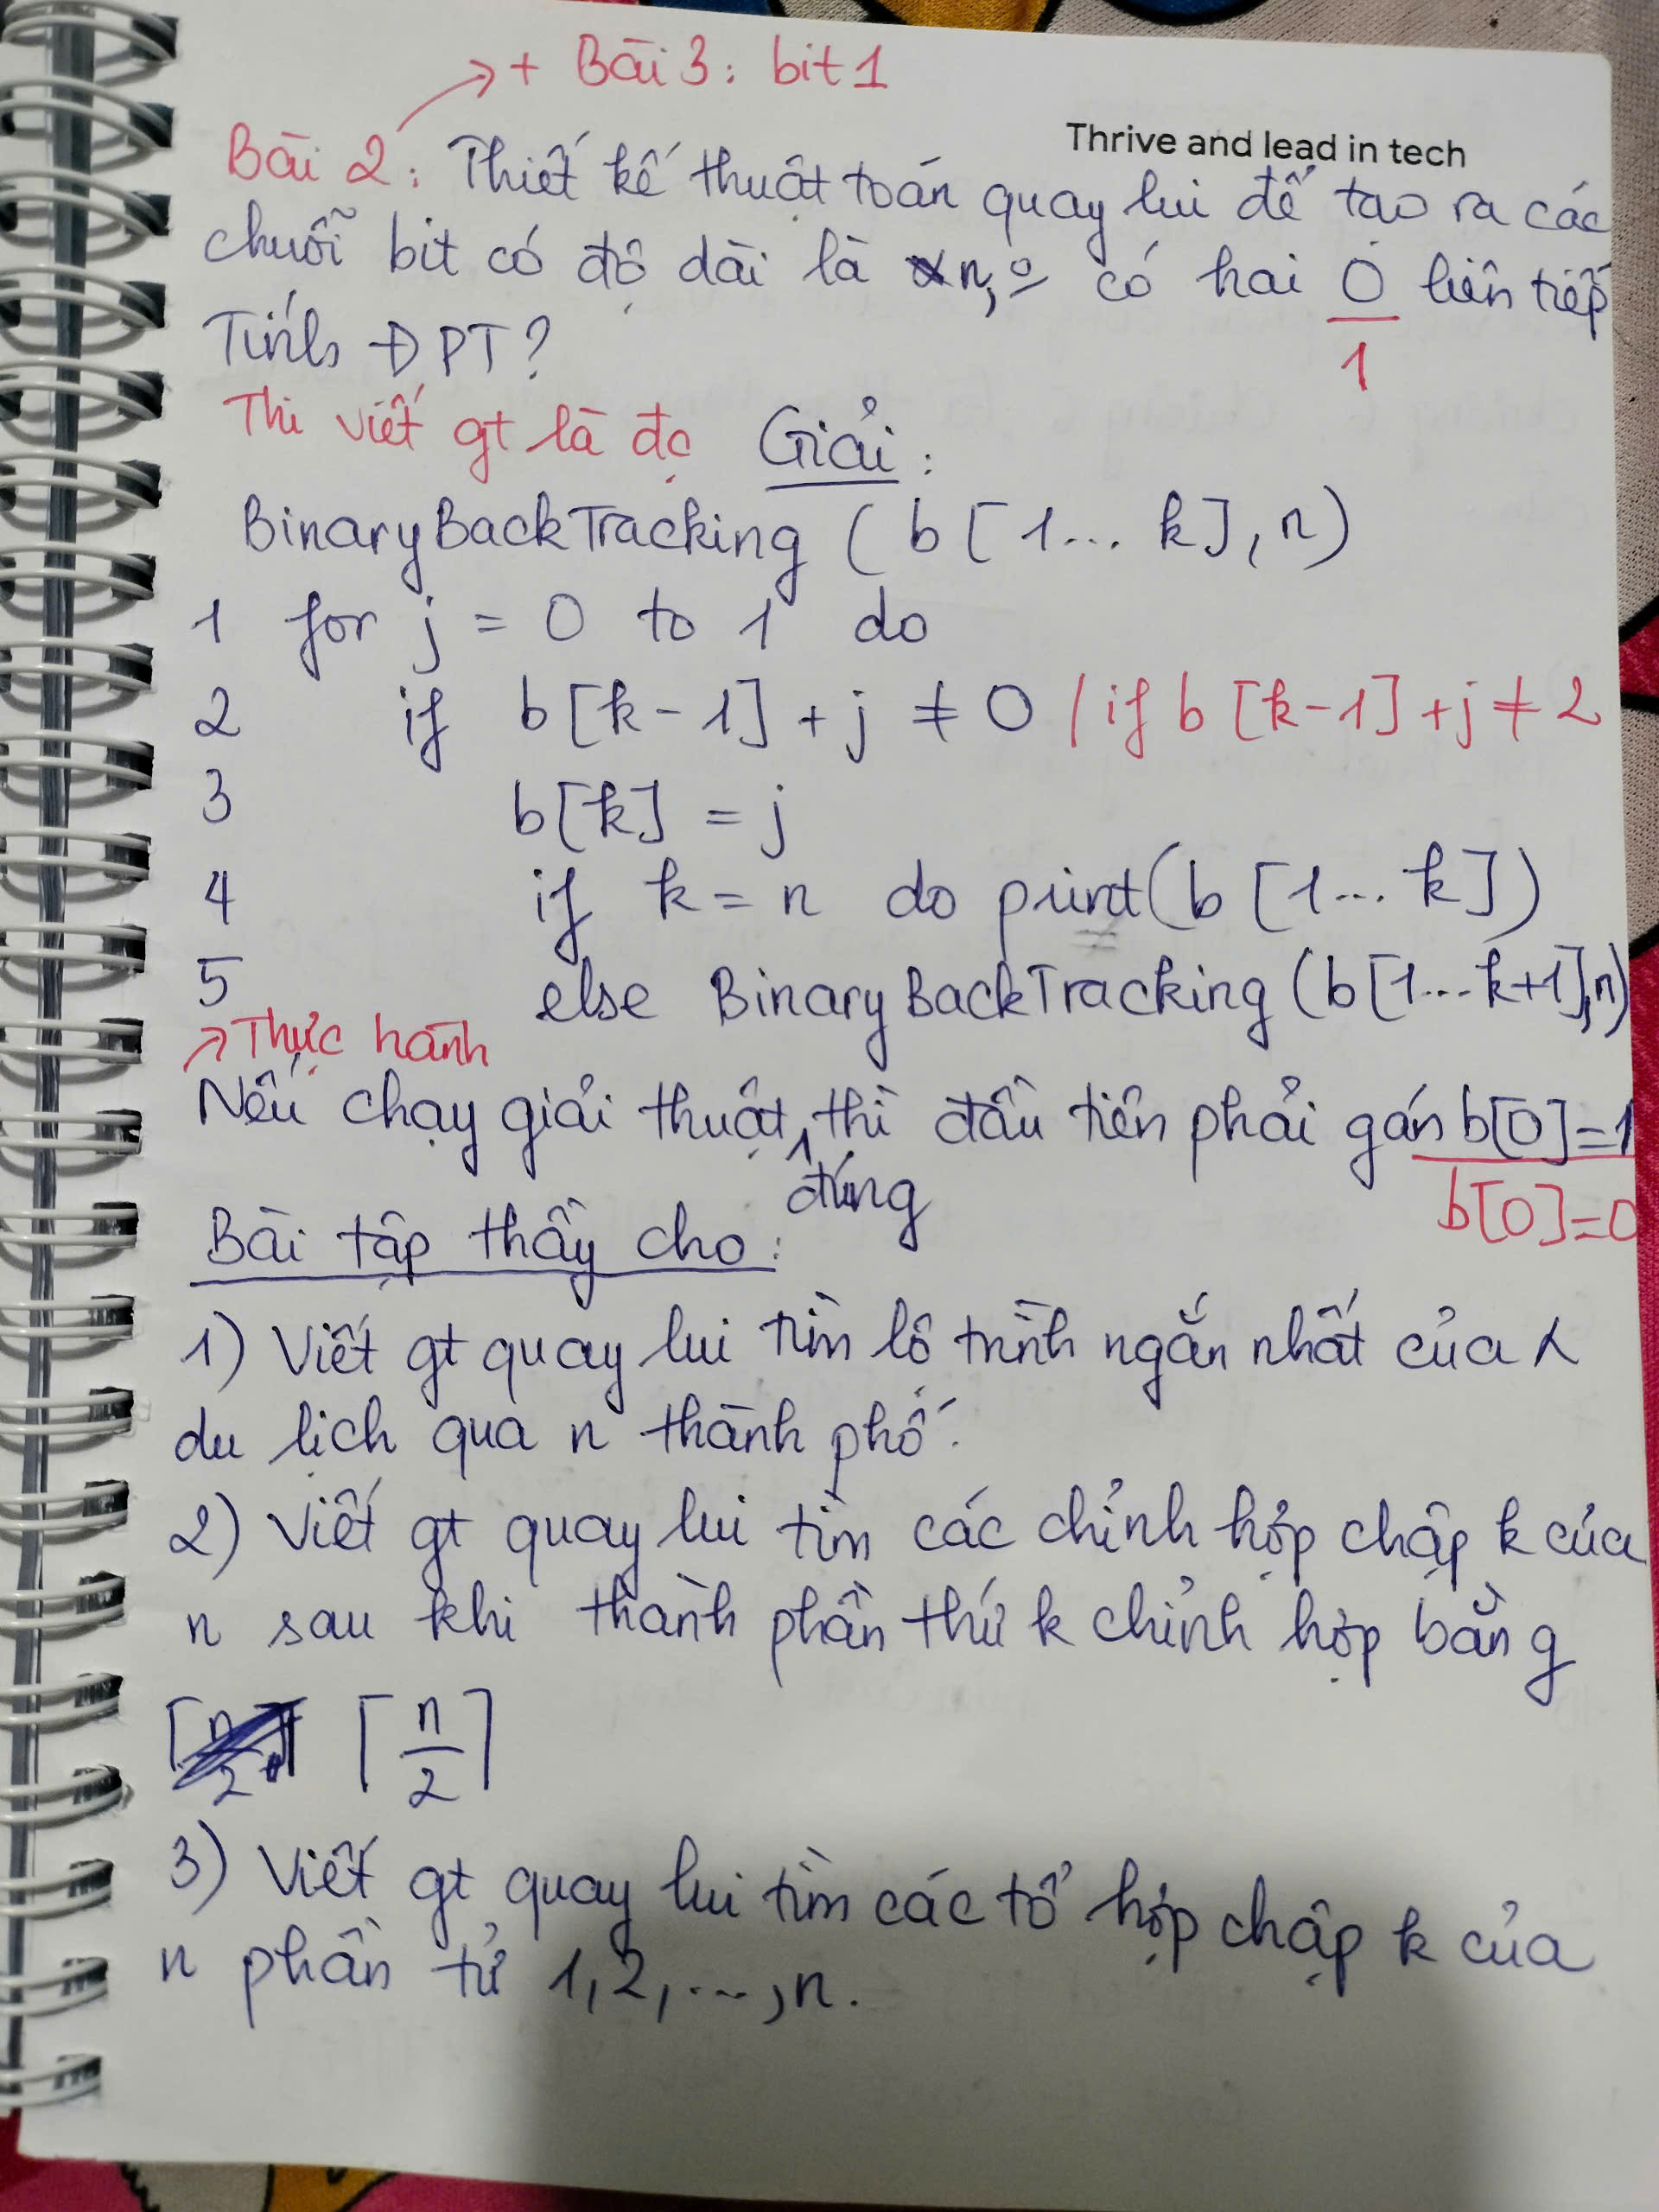 + Bài 3: bit 1
Thrive and lead in tech
Bài 2: Thiết kế thuật toán quay lui để tạo ra các
chuỗi bit có độ dài là n, o có hai 0 liên tiếp
1
Tính ĐPT?
Thi viết gt là đc Giải:
BinaryBackTracking (b[1... k], n)
1 for j = 0 to 1 do
2 if b[k-1] + j ≠ 0 / if b[k-1] + j ≠ 2
3 b[k] = j
4 if k = n do print(b[1... k])
5 else BinaryBackTracking (b[1...k+1], n)
↗ Thực hành
Nếu chạy giải thuật đúng thì đầu tiên phải gán b[0]=1
b[0]=0
Bài tập thầy cho:
1) Viết gt quay lui tìm lộ trình ngắn nhất của
du lịch qua n thành phố.
2) Viết gt quay lui tìm các chỉnh hợp chập k của
n sau khi thành phần thứ k chỉnh hợp bằng
⌈n/2⌉
3) Viết gt quay lui tìm các tổ hợp chập k của
n phần tử 1,2,...,n.